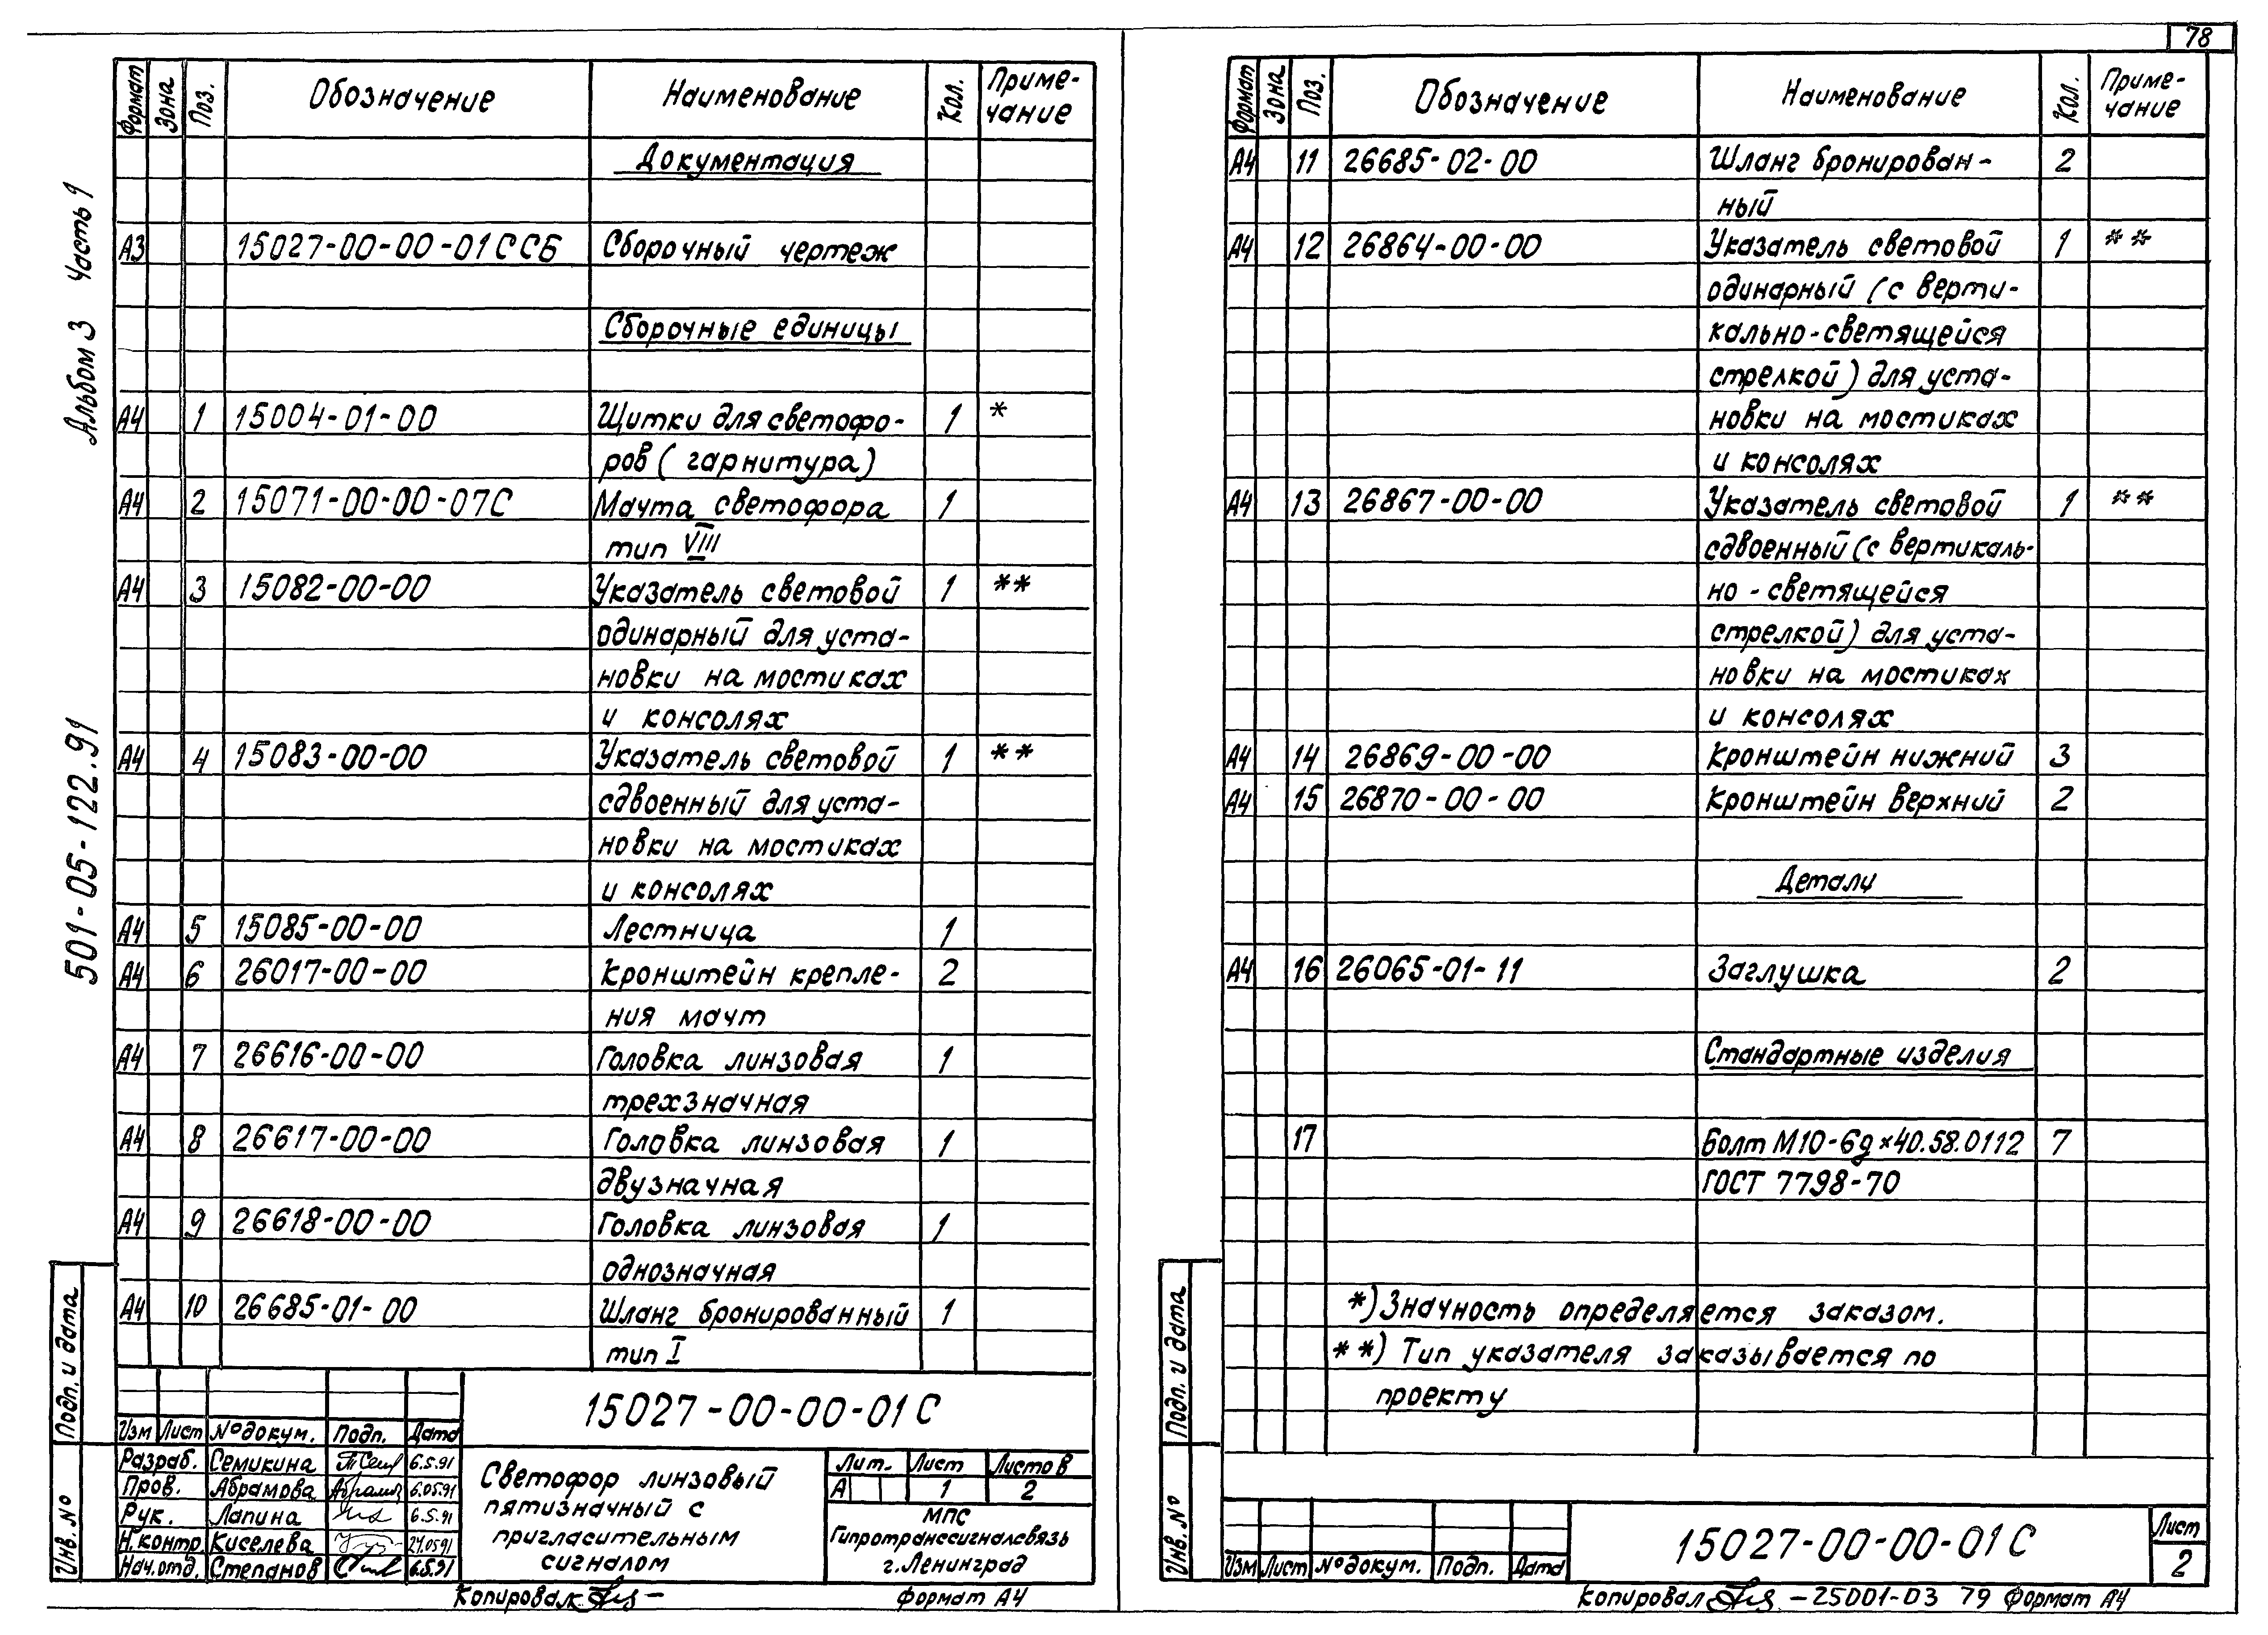 78
Альбом 3 Часть 1
501-05-122.91
Формат Зона Поз. Обозначение Наименование Кол. Приме-
чание
Документация
А3 15027-00-00-01ССБ Сборочный чертеж
Сборочные единицы
А4 1 15004-01-00 Щитки для светофо- 1 *
ров (гарнитура)
А4 2 15071-00-00-07С Мачта светофора 1
тип VIII
А4 3 15082-00-00 Указатель световой 1 **
одинарный для уста-
новки на мостиках
и консолях
А4 4 15083-00-00 Указатель световой 1 **
сдвоенный для уста-
новки на мостиках
и консолях
А4 5 15085-00-00 Лестница 1
А4 6 26017-00-00 Кронштейн крепле- 2
ния мачт
А4 7 26616-00-00 Головка линзовая 1
трехзначная
А4 8 26617-00-00 Головка линзовая 1
двузначная
А4 9 26618-00-00 Головка линзовая 1
однозначная
А4 10 26685-01-00 Шланг бронированный 1
тип I
Подп. и дата
Инв. №
15027-00-00-01С
Изм Лист № докум. Подп. Дата
Разраб. Семикина 6.5.91
Пров. Абрамова 6.05.91
Рук. Лапина 6.5.91
Н.контр. Киселева 24.05.91
Нач.отд. Степанов 6.5.91
Светофор линзовый
пятизначный с
пригласительным
сигналом
Лит. Лист Листов
А 1 2
МПС
Гипротранссигналсвязь
г. Ленинград
Копировал Формат А4
Формат Зона Поз. Обозначение Наименование Кол. Приме-
чание
А4 11 26685-02-00 Шланг бронирован- 2
ный
А4 12 26864-00-00 Указатель световой 1 **
одинарный (с верти-
кально-светящейся
стрелкой) для уста-
новки на мостиках
и консолях
А4 13 26867-00-00 Указатель световой 1 **
сдвоенный (с вертикаль-
но-светящейся
стрелкой) для уста-
новки на мостиках
и консолях
А4 14 26869-00-00 Кронштейн нижний 3
А4 15 26870-00-00 Кронштейн верхний 2
Детали
А4 16 26065-01-11 Заглушка 2
Стандартные изделия
17 Болт М10-6g×40.58.0112 7
ГОСТ 7798-70
*) Значность определяется заказом.
**) Тип указателя заказывается по
проекту
Подп. и дата
Инв. №
Изм Лист № докум. Подп. Дата
15027-00-00-01С
Лист
2
Копировал - 25001-03 79 Формат А4